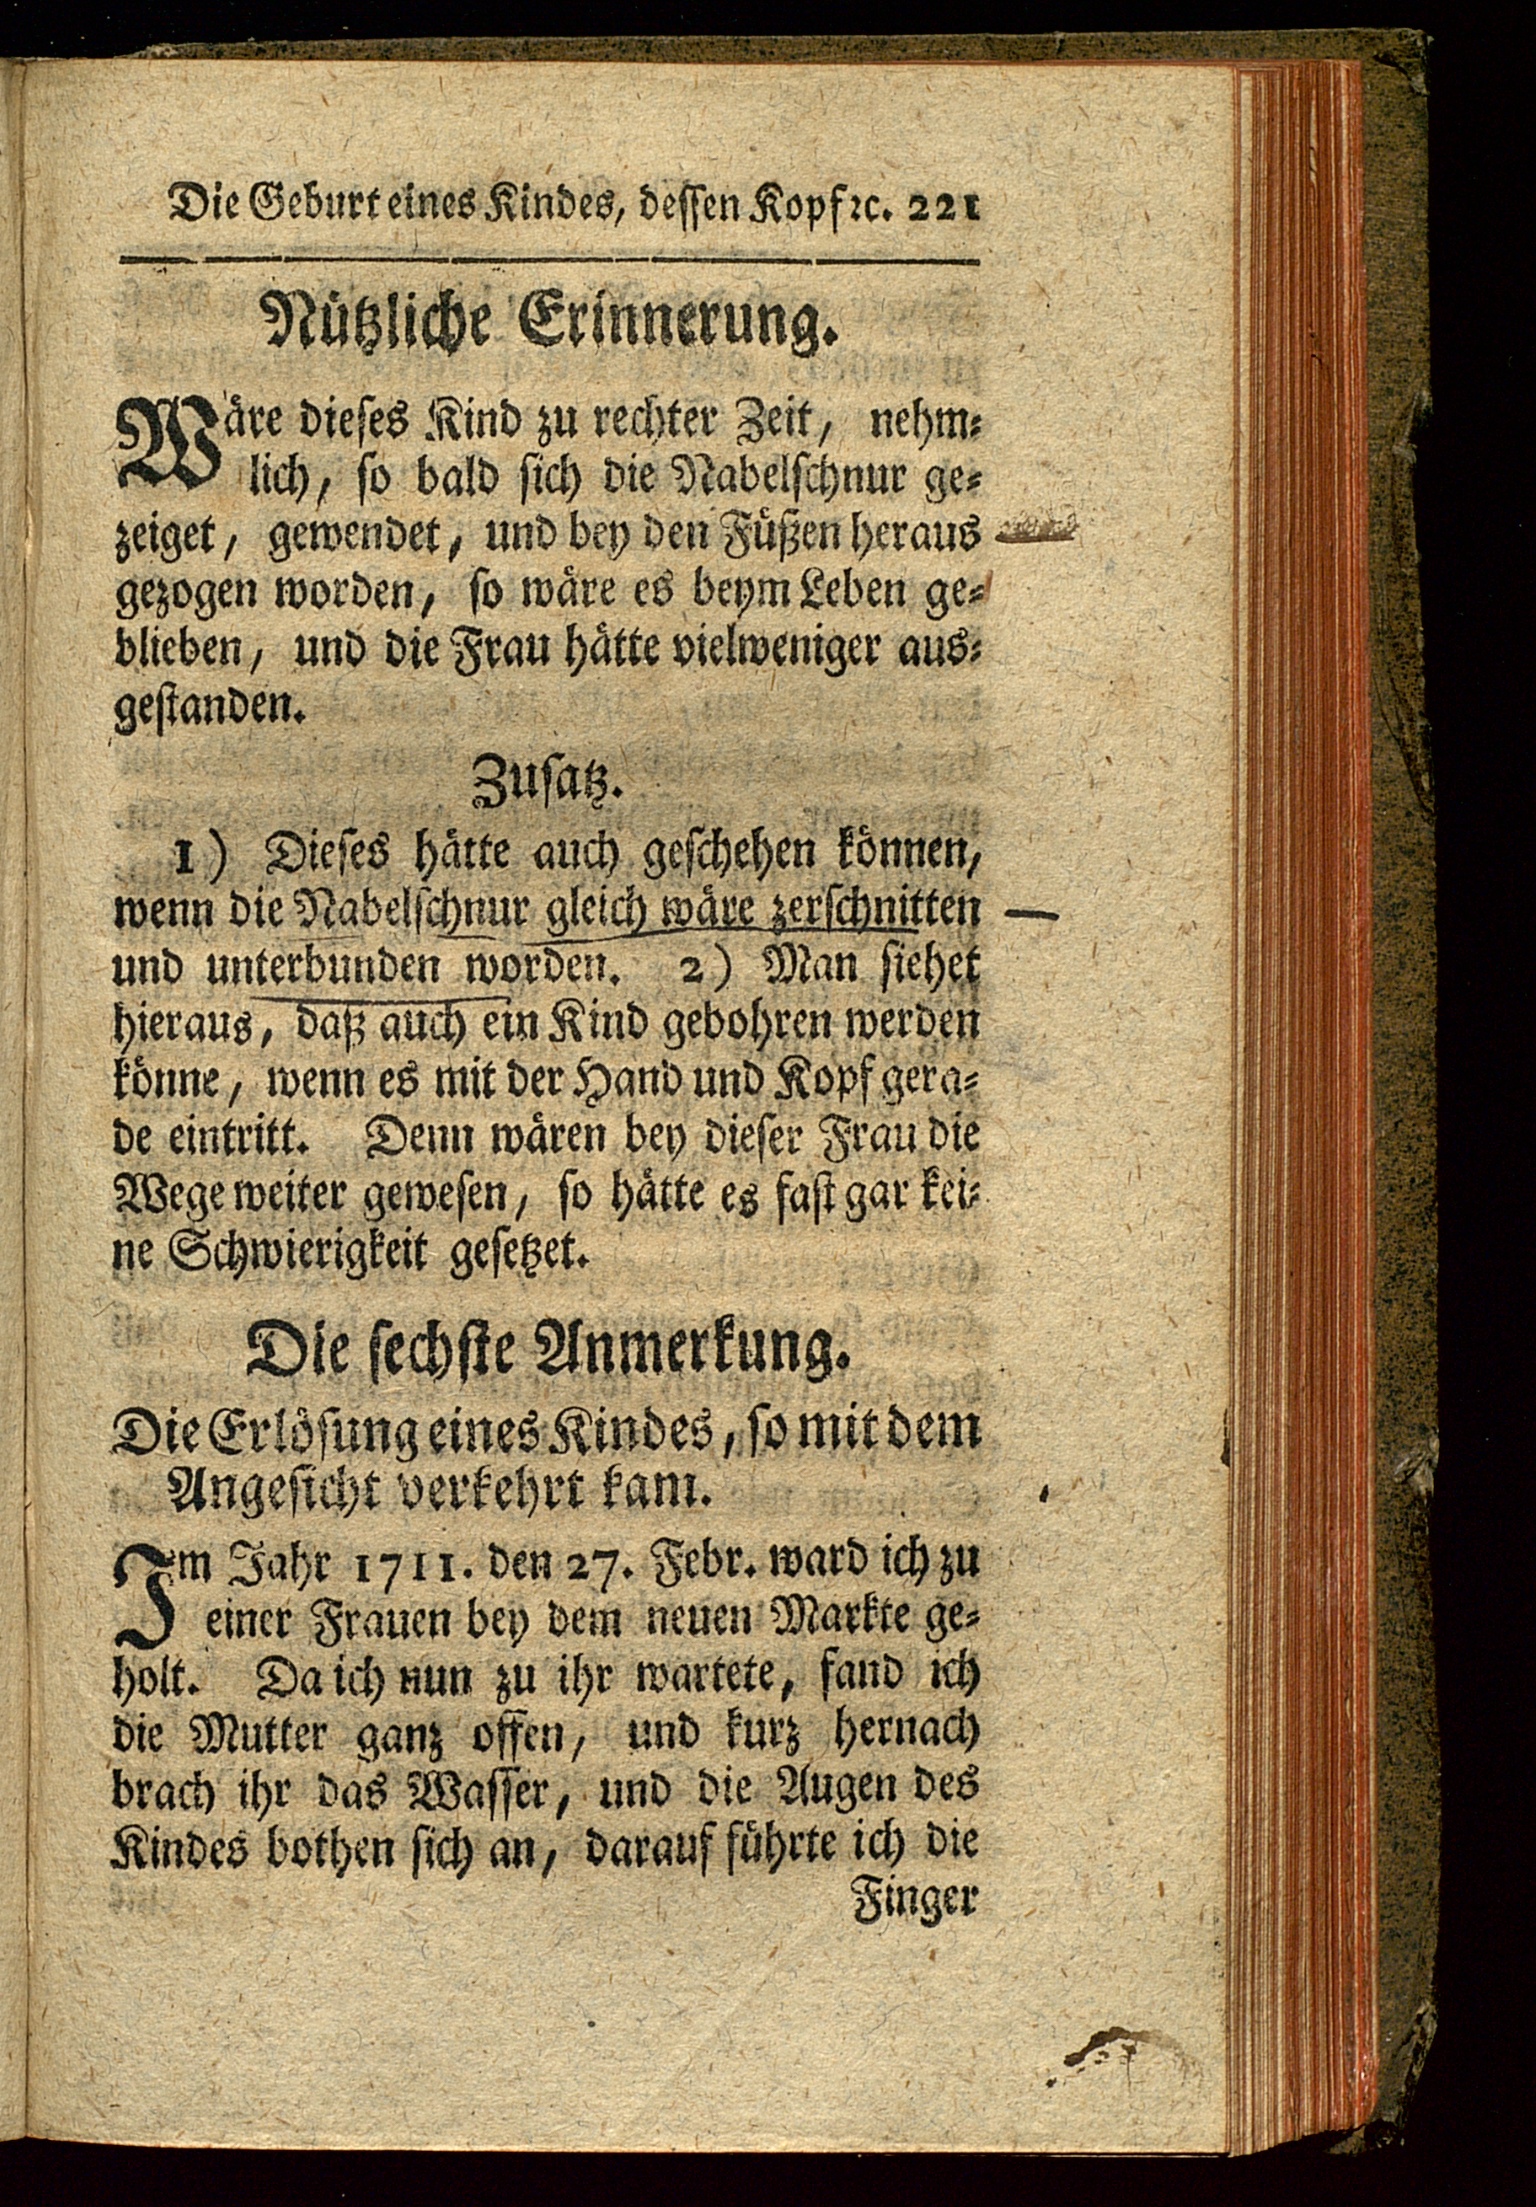 Die Geburt eines Kindes, dessen Kopf ꝛc. 221
Nützliche Erinnerung.
Wäre dieses Kind zu rechter Zeit, nehm-
lich, so bald sich die Nabelschnur ge-
zeiget, gewendet, und bey den Füßen heraus
gezogen worden, so wäre es beym Leben ge-
blieben, und die Frau hätte vielweniger aus-
gestanden.
Zusatz.
1) Dieses hätte auch geschehen können,
wenn die Nabelschnur gleich wäre zerschnitten
und unterbunden worden. 2) Man siehet
hieraus, daß auch ein Kind gebohren werden
könne, wenn es mit der Hand und Kopf gera-
de eintritt. Denn wären bey dieser Frau die
Wege weiter gewesen, so hätte es fast gar kei-
ne Schwierigkeit gesetzet.
Die sechste Anmerkung.
Die Erlösung eines Kindes, so mit dem
Angesicht verkehrt kam.
Im Jahr 1711. den 27. Febr. ward ich zu
einer Frauen bey dem neuen Markte ge-
holt. Da ich nun zu ihr wartete, fand ich
die Mutter ganz offen, und kurz hernach
brach ihr das Wasser, und die Augen des
Kindes bothen sich an, darauf führte ich die
Finger